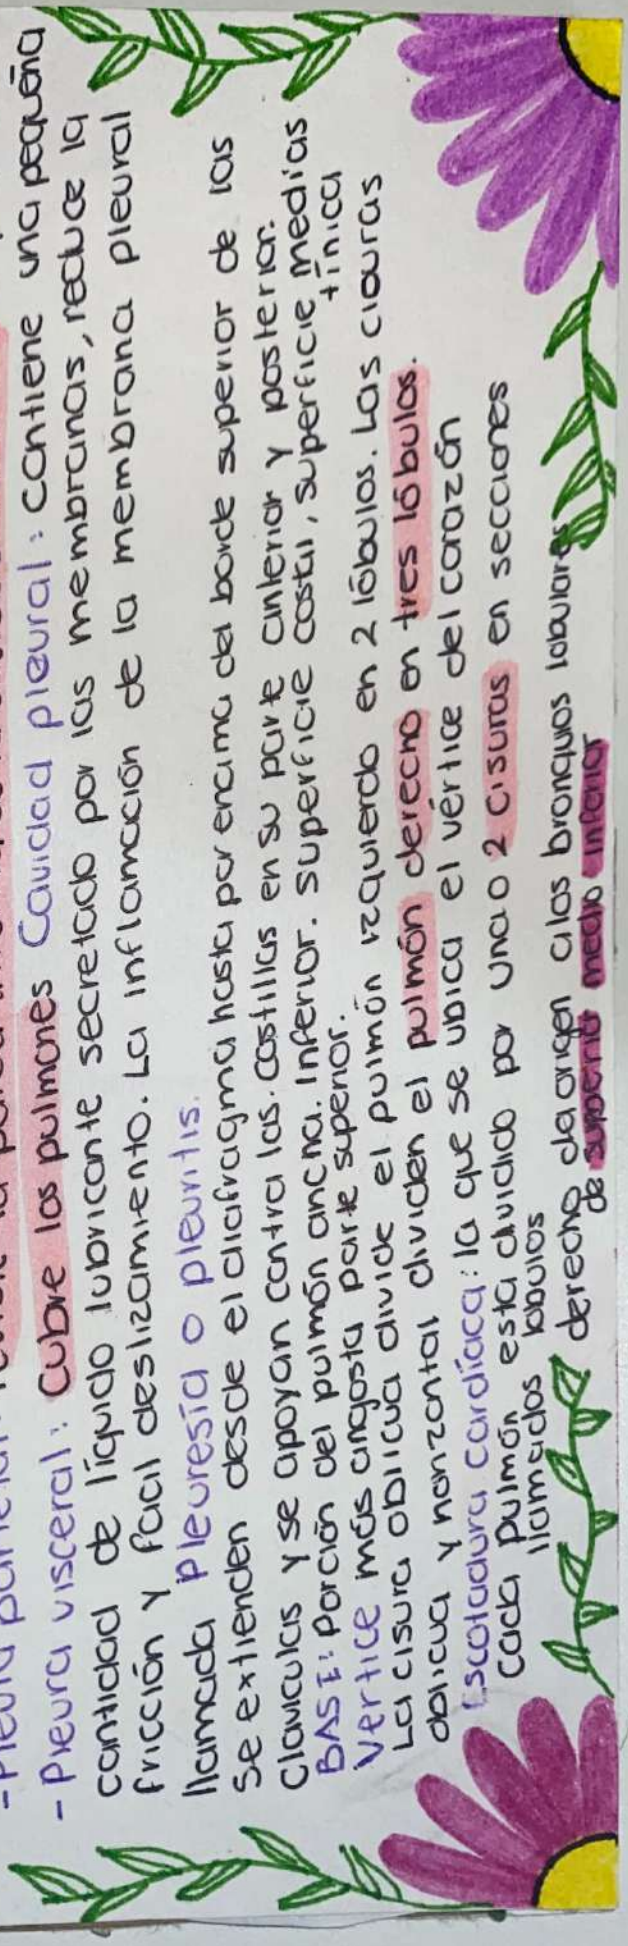 - Pleura visceral: Cubre los pulmones Cavidad pleural: contiene una pequeña
cantidad de líquido lubricante secretado por las membranas, reduce la
fricción y facil deslizamiento. La inflamación de la membrana pleural
llamada pleuresía o pleuritis.
Se extienden desde el diafragma hasta por encima del borde superior de las
Clavículas y se apoyan contra las costillas en su parte anterior y posterior.
BASE: Porción del pulmón ancha. Inferior. Superficie costal, superficie medias
tínica
Vertice más angosta parte superior.
La cisura oblicua divide el pulmón izquierdo en 2 lóbulos. Las ciouras
oblicua y horizontal dividen el pulmón derecho en tres lóbulos.
Escotadura cardíaca: la que se ubica el vértice del corazón
Cada pulmón está dividido por una o 2 cisuras en secciones
llamadas lobulos
derecho da origen a los bronquios lobulares
de superior medio inferior